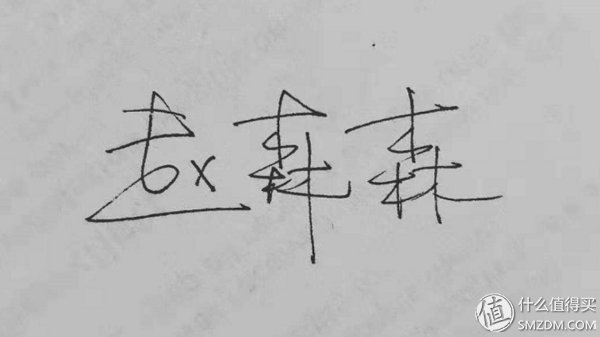 赵森森
值 什么值得买
SMZDM.COM